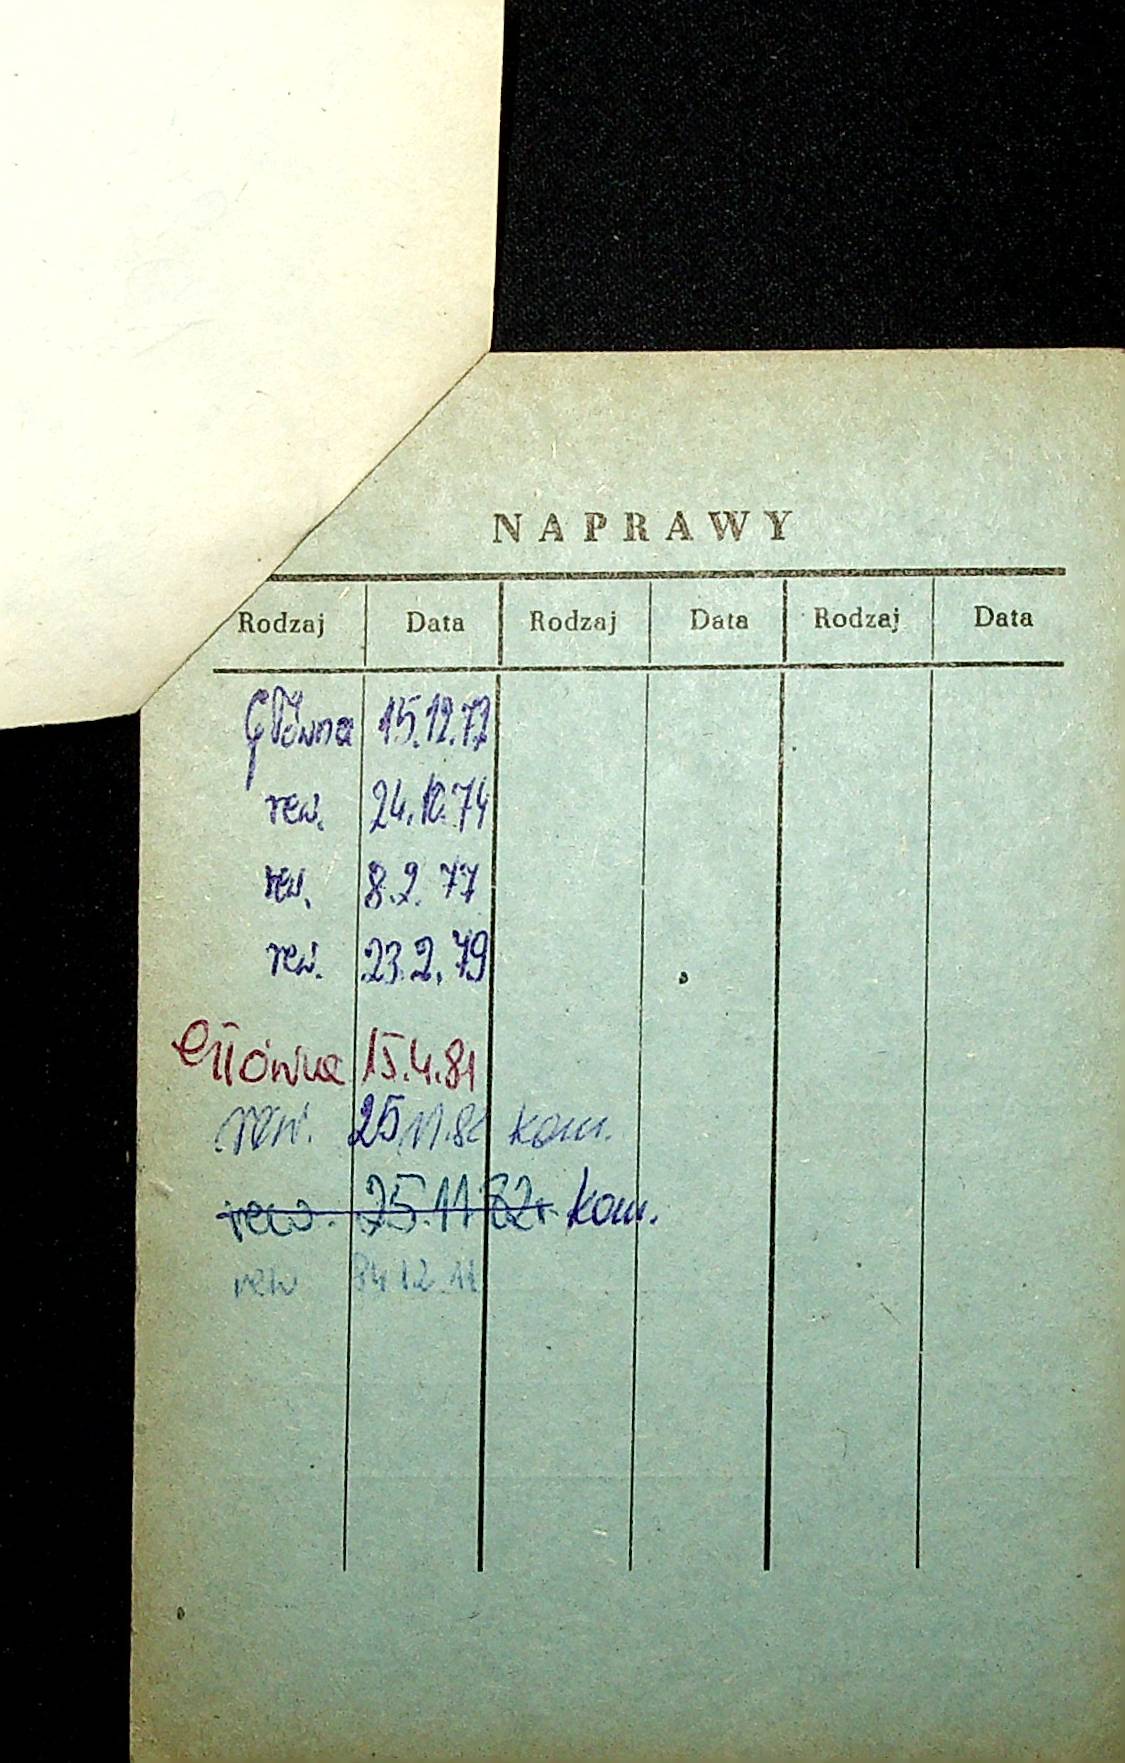 NAPRAWY
Rodzaj Data Rodzaj Data Rodzaj Data
Główna 15.12.72
rew. 24.10.74
rew. 8.2.77
rew. 23.2.79
Główna 15.4.81
rew. 25.11.82 kom.
rew. 25.11.82r kom.
rew 84.12.11